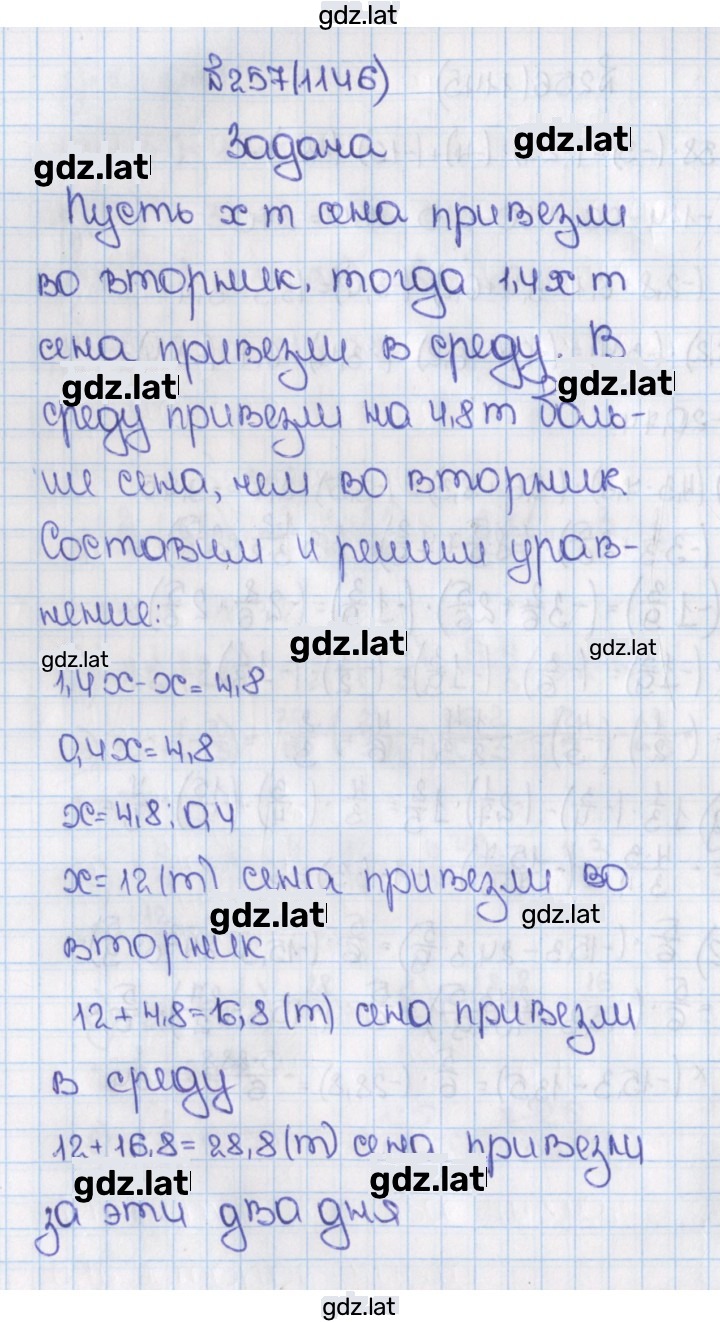 gdz.lat
№257(1146)
Задача
gdz.lat
gdz.lat
Пусть x т сена привезли
во вторник, тогда 1,4x т
сена привезли в среду. В
gdz.lat
gdz.lat
среду привезли на 4,8 т боль-
ше сена, чем во вторник.
Составим и решим урав-
нение:
gdz.lat
gdz.lat
gdz.lat
1,4x-x=4,8
0,4x=4,8
x=4,8:0,4
x=12(т) сена привезли во
gdz.lat
gdz.lat
вторник
12+4,8=16,8(т) сена привезли
в среду
12+16,8=28,8(т) сена привезли
gdz.lat
gdz.lat
за эти два дня
gdz.lat